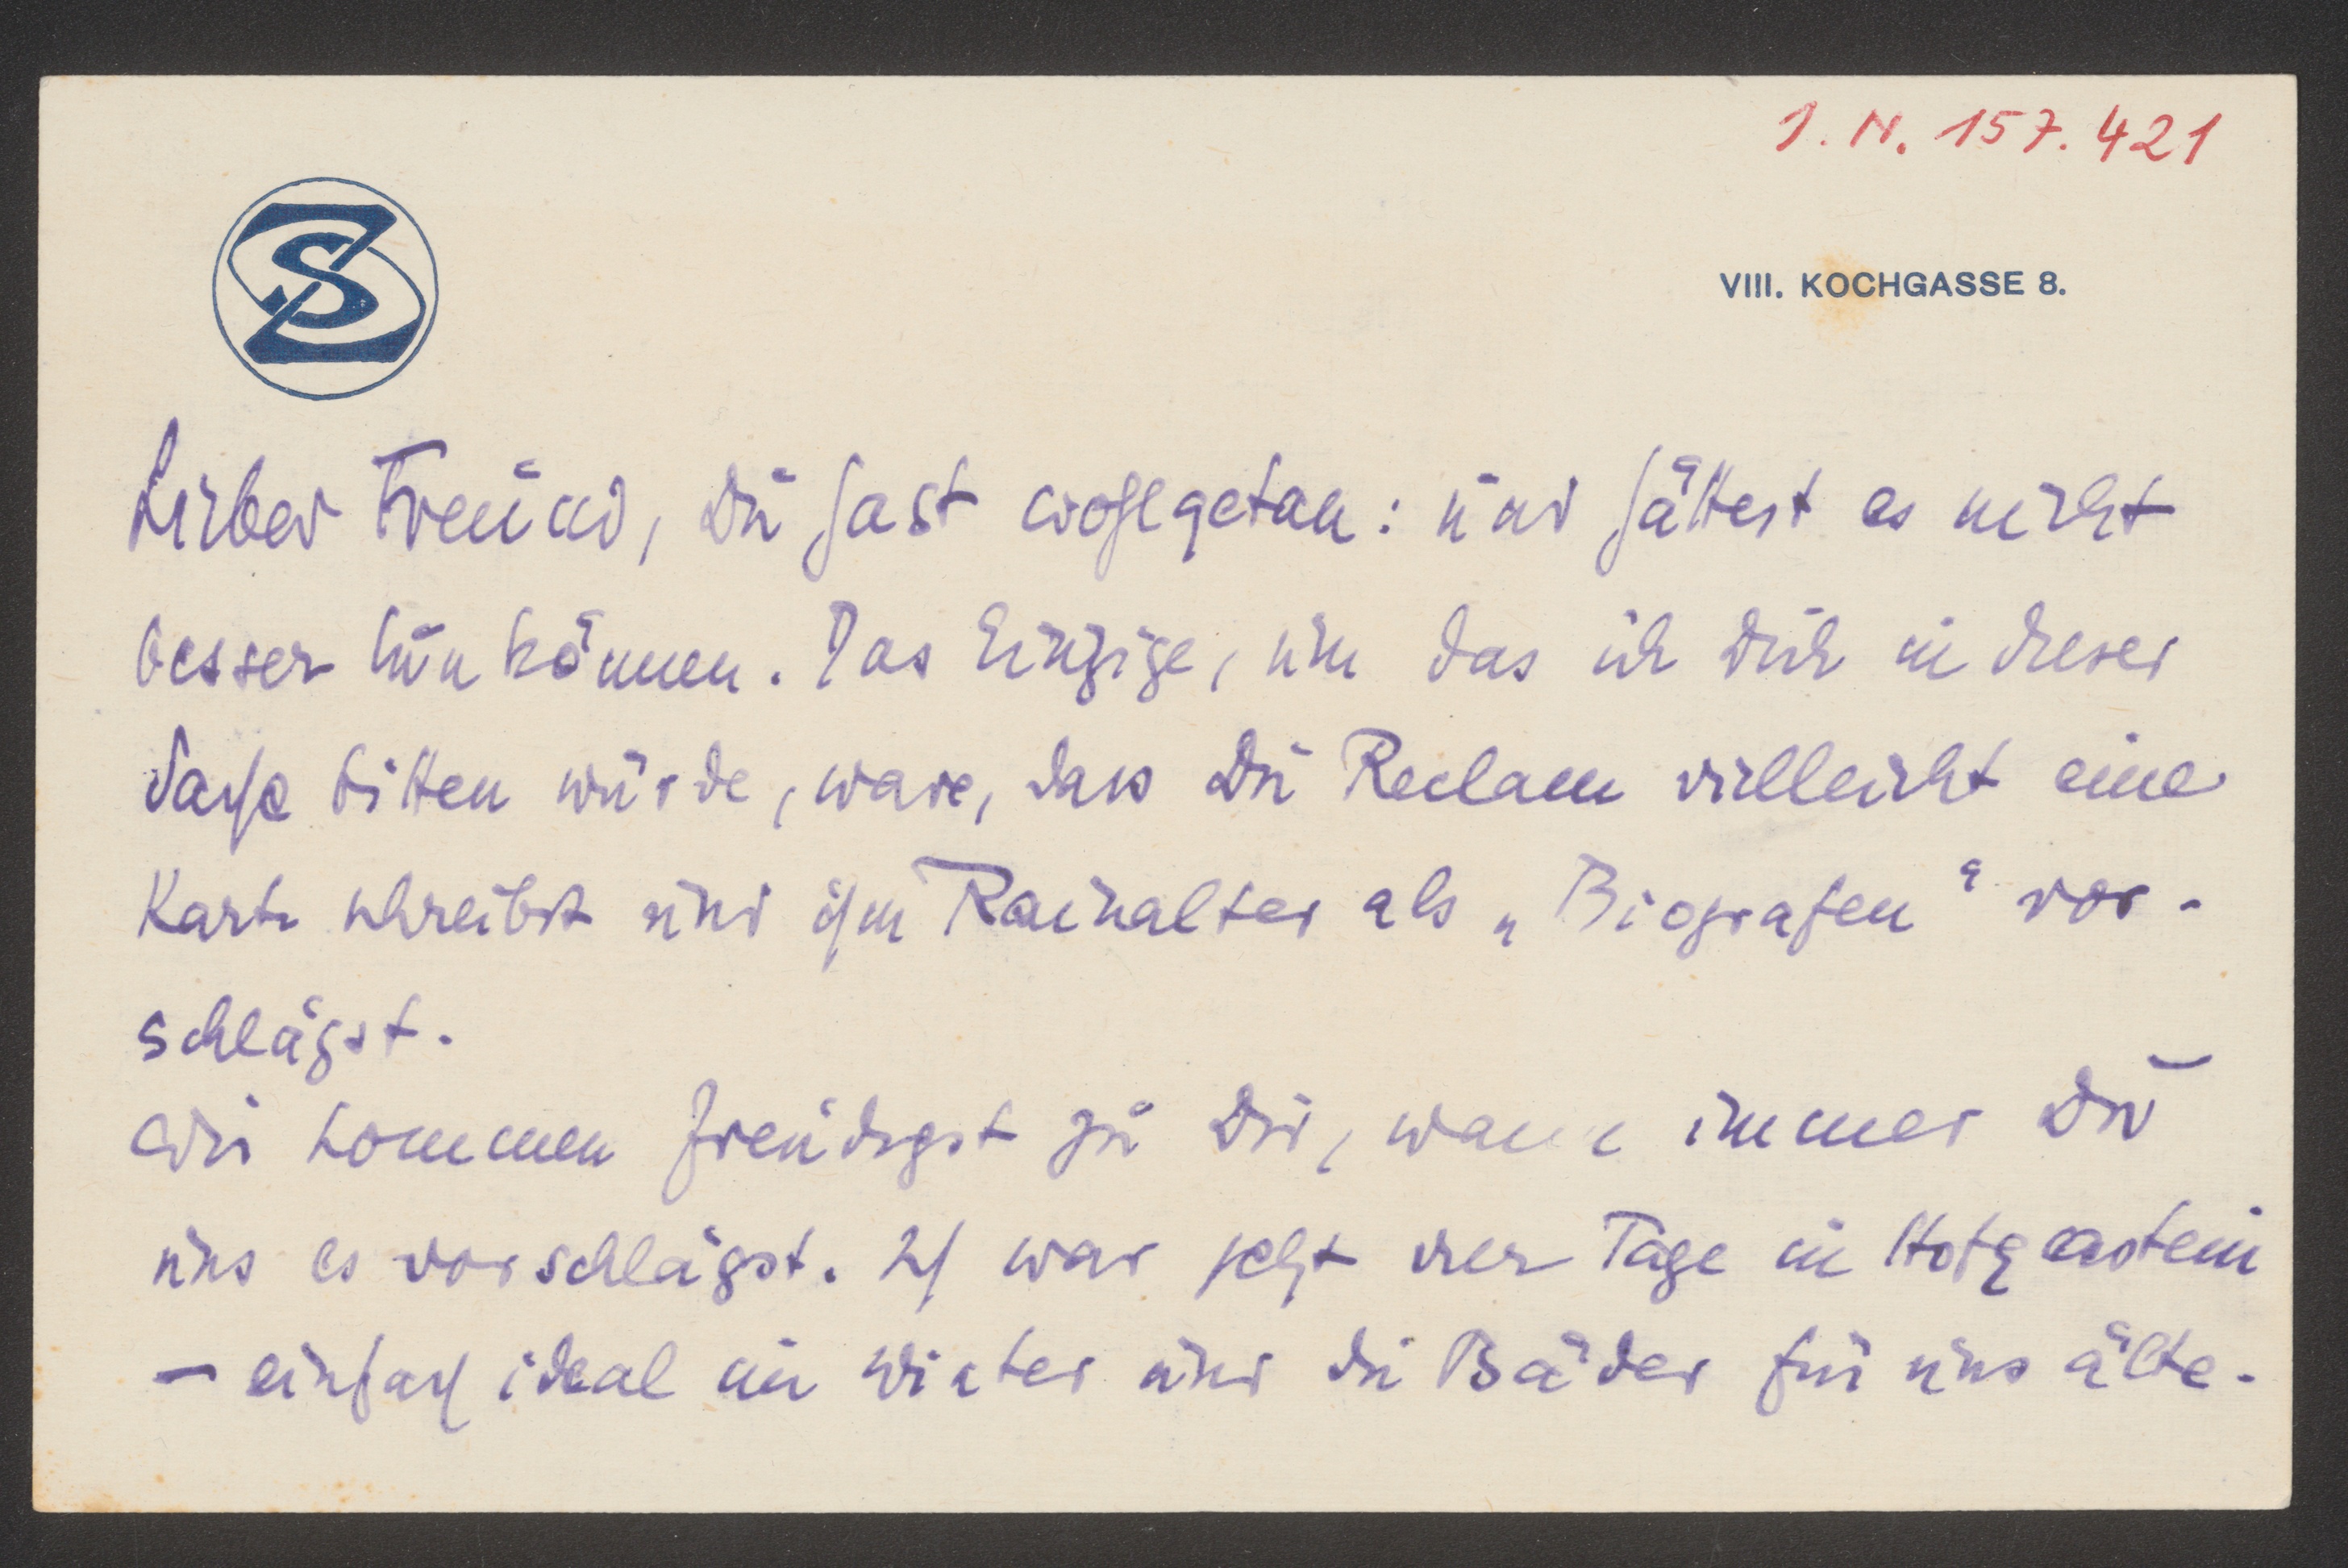 I. N. 157.421
SZ
VIII. KOCHGASSE 8.
Lieber Freund, Du hast wohlgetan: und hättest es nicht
besser tun können. Das Einzige, um das ich Dich in dieser
Sache bitten würde, wäre, dass Du Reclam vielleicht eine
Karte schreibst und ihm Rainalter als „Biografen“ vor-
schlägst.
Wir kommen freudigst zu Dir, wann immer Du
uns es vorschlägst. Ich war jetzt vier Tage in Hofgastein
– einfach ideal im Winter und die Bäder für uns älte-